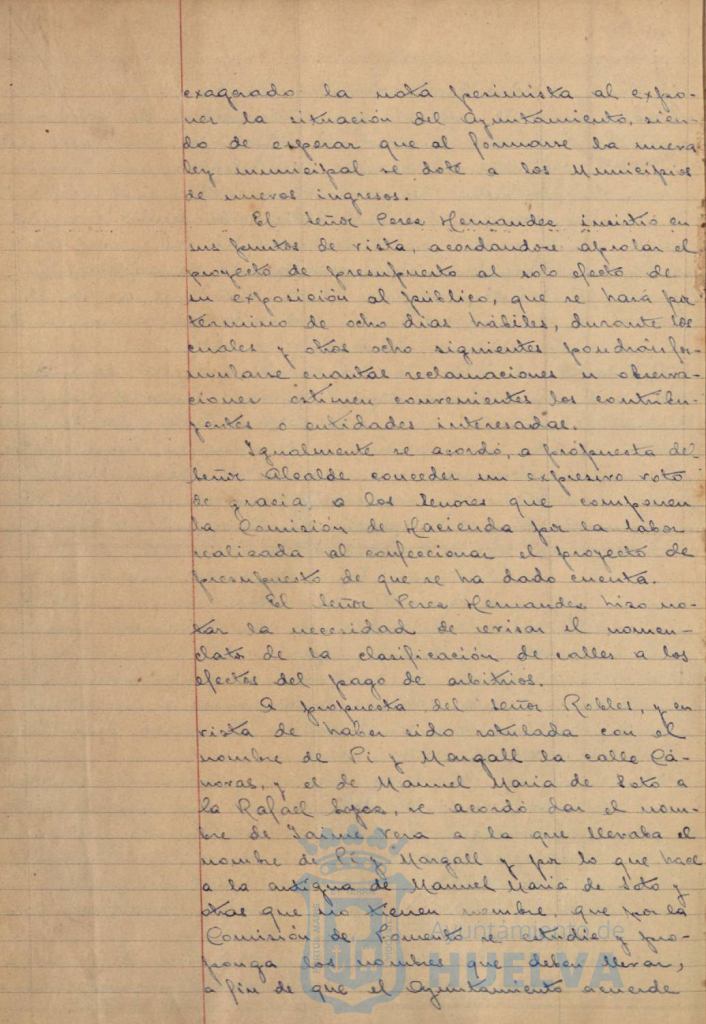 exagerado la nota pesimista al expo-
ner la situación del Ayuntamiento, sien-
do de esperar que al formarse la nueva
ley municipal se dote a los Municipios
de nuevos ingresos.
El Señor Perez Hernandez insistió en
sus puntos de vista, acordandose aprobar el
proyecto de presupuesto al solo efecto de
su exposición al público, que se hará por
término de ocho dias hábiles, durante los
cuales y otros ocho siguientes pondrán for-
mularse cuantas reclamaciones u observa-
ciones estimen convenientes los contribu-
yentes o entidades interesadas.
Igualmente se acordó, a propuesta del
Señor Alcalde conceder un expresivo voto
de gracia, a los Señores que componen
la Comisión de Hacienda por la labor
realizada al confeccionar el proyecto de
presupuesto de que se ha dado cuenta.
El Señor Perez Hernandez hizo no-
tar la necesidad de revisar el nomen-
clator de la clasificación de calles a los
efectos del pago de arbitrios.
A propuesta del Señor Robles, y en
vista de haber sido rotulada con el
nombre de Pi y Margall la calle Cá-
novas, y el de Manuel Maria de Soto a
la Rafael Lopez, se acordó dar el nom-
bre de Jaime Vera a la que llevaba el
nombre de Pi y Margall y por lo que hace
a la antigua de Manuel Maria de Soto y
otras que no tienen nombre, que por la
Comisión de Fomento se estudie y pro-
ponga los nombres que deben llevar,
a fin de que el Ayuntamiento acuerde
Ayuntamiento de
HUELVA